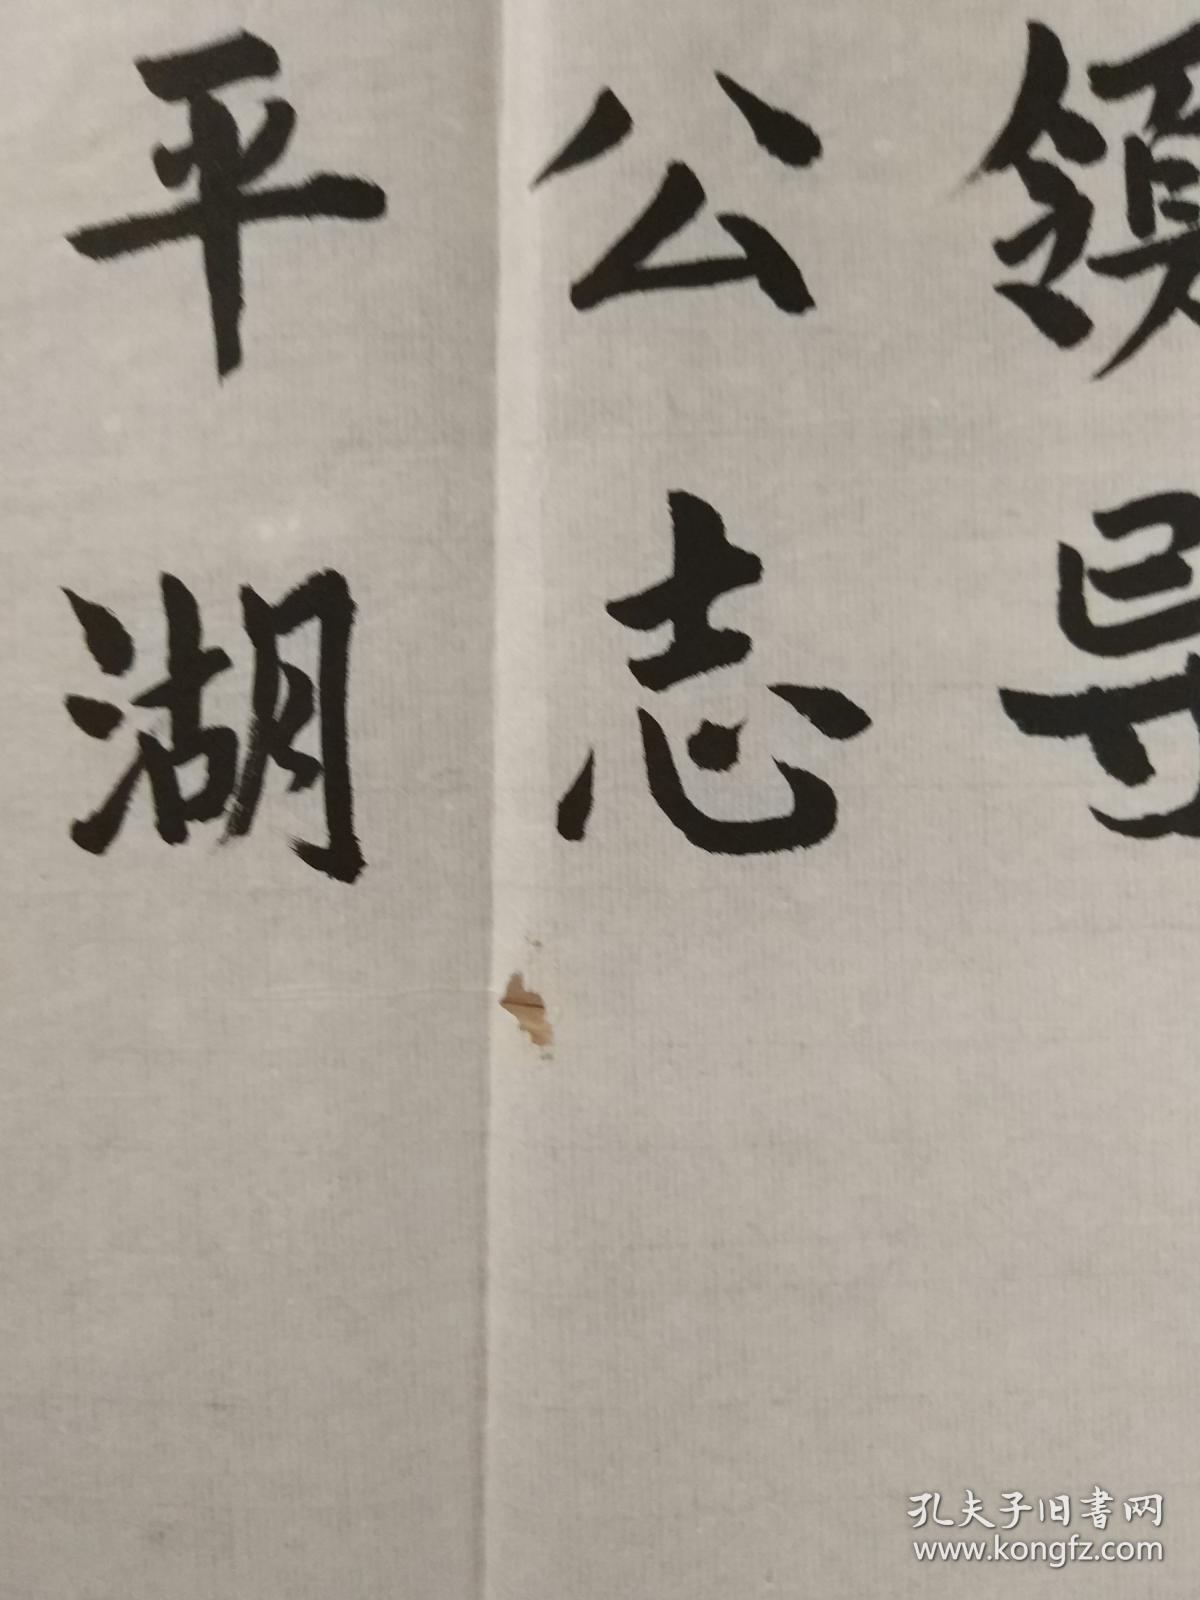 镇导
公志
平湖
孔夫子旧书网
www.kongfz.com